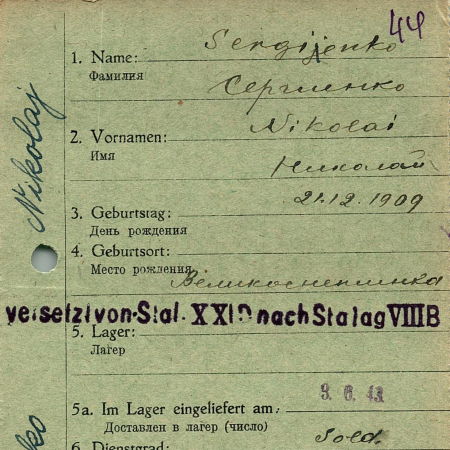 44
Sergijenko
1. Name:
Фамилия
Сергиенко
Nikolai
2. Vornamen:
Имя
Николай
21.12.1909
3. Geburtstag:
День рождения
4. Geburtsort:
Место рождения
Великоснетинка
versetzt von Stal. XXID nach Stalag VIII B
5. Lager:
Лагер
3. 6. 43
5a. Im Lager eingeliefert am:
Доставлен в лагер (число)
Sold.
6. Dienstgrad:
Nikolaj